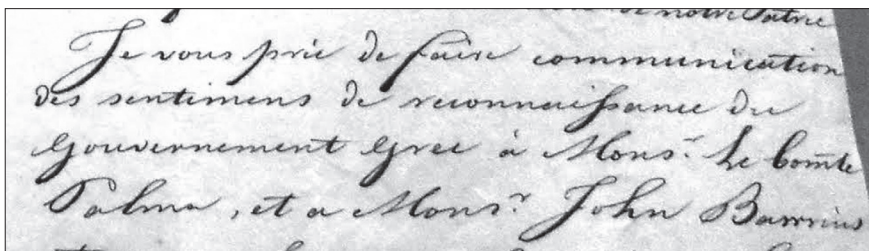 de notre Patrie
Je vous prie de faire communication
des sentimens de reconnaissance du
Gouvernement Grec à Mons.r Le Comte
Palma, et a Mons.r John Bawrius